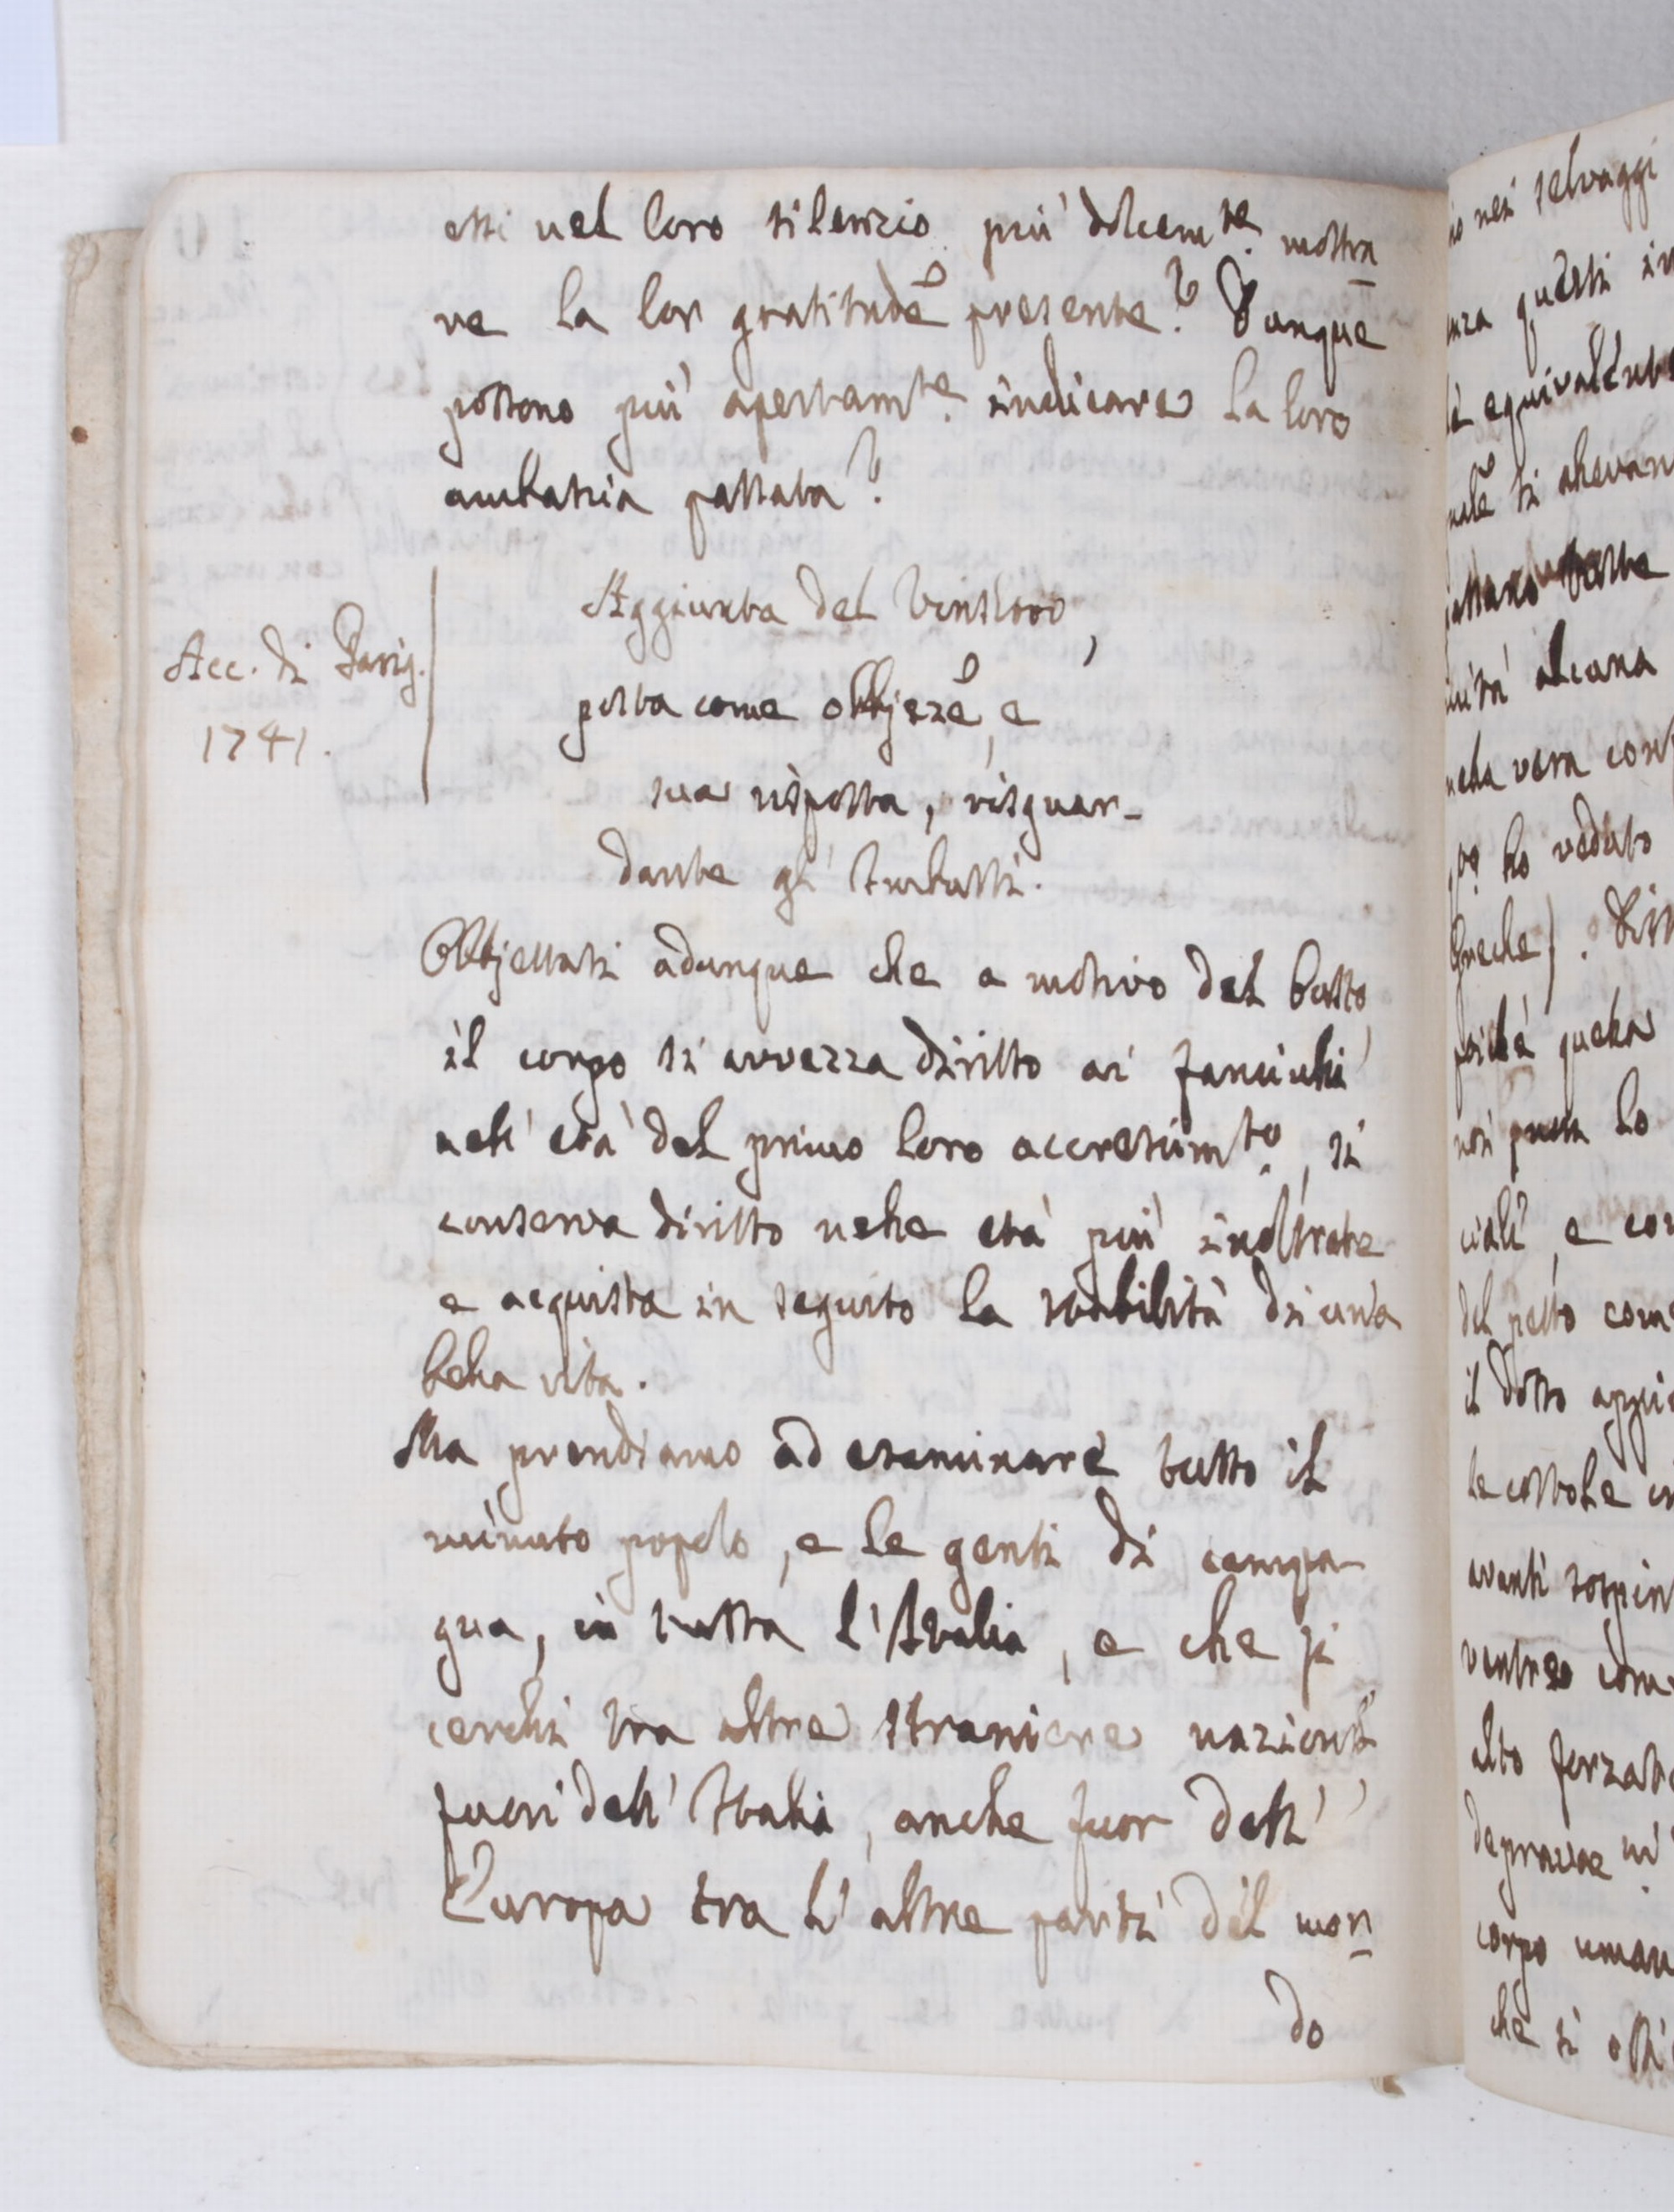 essi nel loro silenzio più dolcem.te mostra
re la lor gratitudẽ presente? Dunque
possono più apertam.te indicare la loro
ambascia passata?
Aggiunta del Vinslow,
Acc. di Parig.
1741.
posta come obbjezẽ, e
sua risposta, risguar-
dante gl' Imbusti.
Obbjettasi adunque che a motivo del busto
il corpo si avvezza diritto ai fanciulli
nell' età del primo loro accrescim.to, si
conserva diritto nelle età più inoltrate
e acquista in seguito la stabilità di una
bella vita.
Ma prendiamo ad esaminare tutto il
minuto popolo, e le genti di campa-
gna, in tutta l'Italia, e che si
cerchi tra altre straniere nazioni
fuori dell' Italia, anche fuor dell'
Europa tra l' altre parti del mon
do
nei selvaggi
questi in
equivalente
si allevan
alcuna
vera
ho veduto
Greche).
poichè quella
lo
e con
del petto come
il dotto
le costole
avanti sospin
ventre
alto forzat
corpo uman
che si